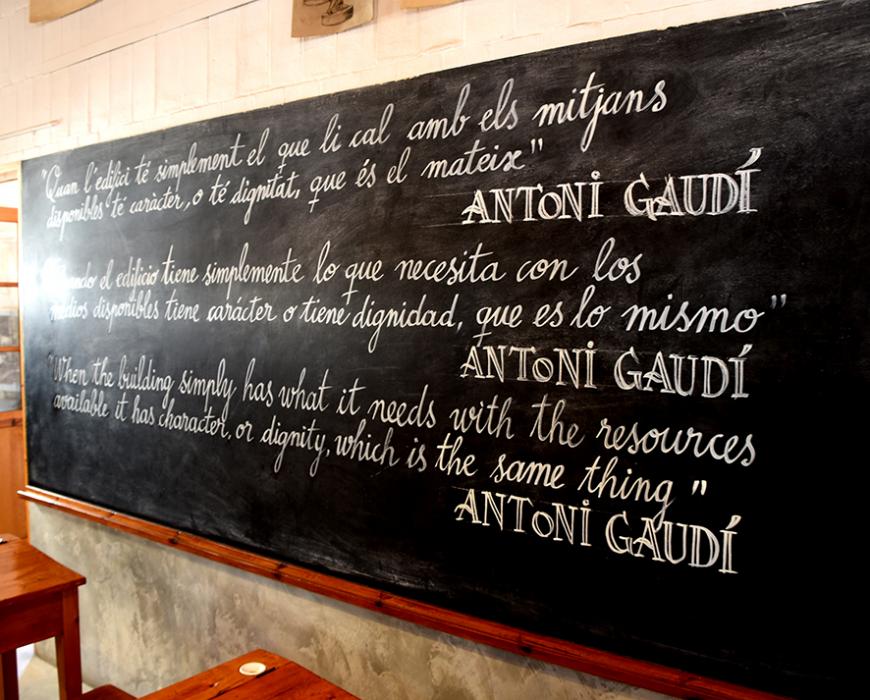 "Quan l'edifici té simplement el que li cal amb els mitjans
disponibles té caràcter, o té dignitat, que és el mateix"
ANTONI GAUDÍ
el edificio tiene simplemente lo que necesita con los
medios disponibles tiene carácter o tiene dignidad, que es lo mismo"
ANTONI GAUDÍ
"When the building simply has what it needs with the resources
available it has character, or dignity, which is the same thing"
ANTONI GAUDÍ